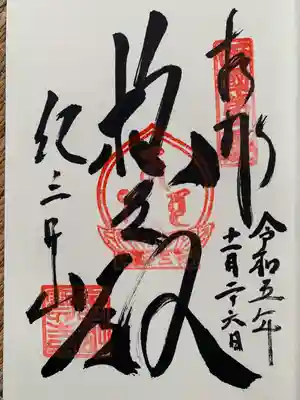 奉拝
令和五年
十一月二十六日
救世殿
紀三井寺